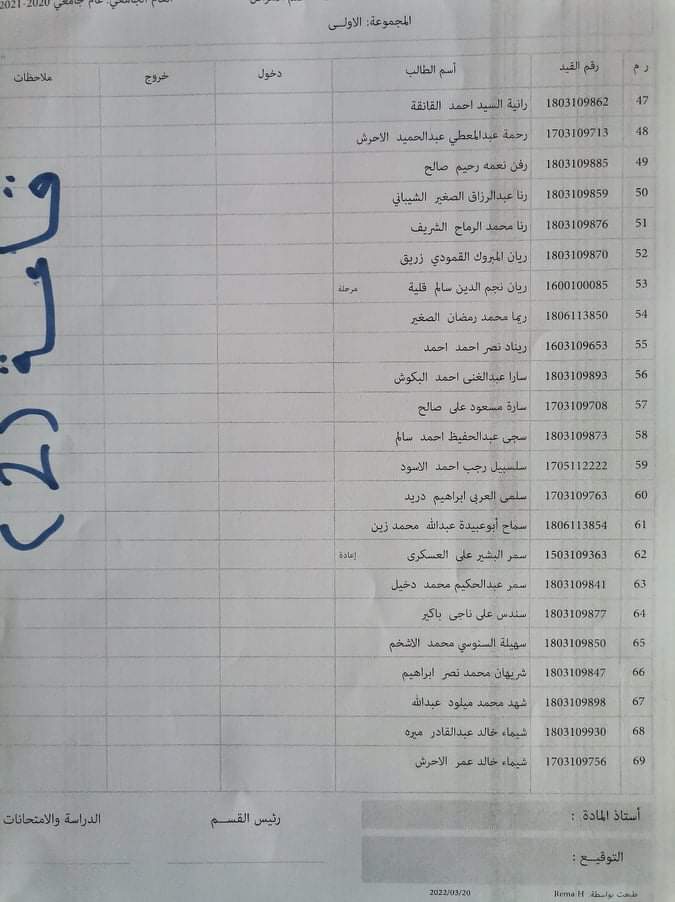 العام الجامعي: عام جامعي 2020-2021
المجموعة: الاولــى
ر م رقم القيد أسم الطالب دخول خروج ملاحظات
47 1803109862 رانية السيد احمد القانقة
48 1703109713 رحمة عبدالمعطي عبدالحميد الاحرش
49 1803109885 رفن نعمه رحيم صالح
50 1803109859 رنا عبدالرزاق الصغير الشيباني
51 1803109876 رنا محمد الرماح الشريف
52 1803109870 ريان المبروك القمودي زريق
53 1600100085 ريان نجم الدين سالم قلية مرحلة
54 1806113850 ريما محمد رمضان الصغير
55 1603109653 ريناد نصر احمد احمد
56 1803109893 سارا عبدالغنى احمد البكوش
57 1703109708 سارة مسعود على صالح
58 1803109873 سجى عبدالحفيظ احمد سالم
59 1705112222 سلسبيل رجب احمد الاسود
60 1703109763 سلمى العربى ابراهيم دريد
61 1806113854 سماح أبوعبيدة عبدالله محمد زين
62 1503109363 سمر البشير على العسكرى إعادة
63 1803109841 سمر عبدالحكيم محمد دخيل
64 1803109877 سندس على ناجى باكير
65 1803109850 سهيلة السنوسي محمد الاشخم
66 1803109847 شريهان محمد نصر ابراهيم
67 1803109898 شهد محمد ميلود عبدالله
68 1803109930 شيماء خالد عبدالقادر ميره
69 1703109756 شيماء خالد عمر الاحرش
قاعة (2)
أستاذ المادة :
رئيس القســم
الدراسة والامتحانات
التوقيــع :
طبعت بواسطة: Rema H
2022/03/20